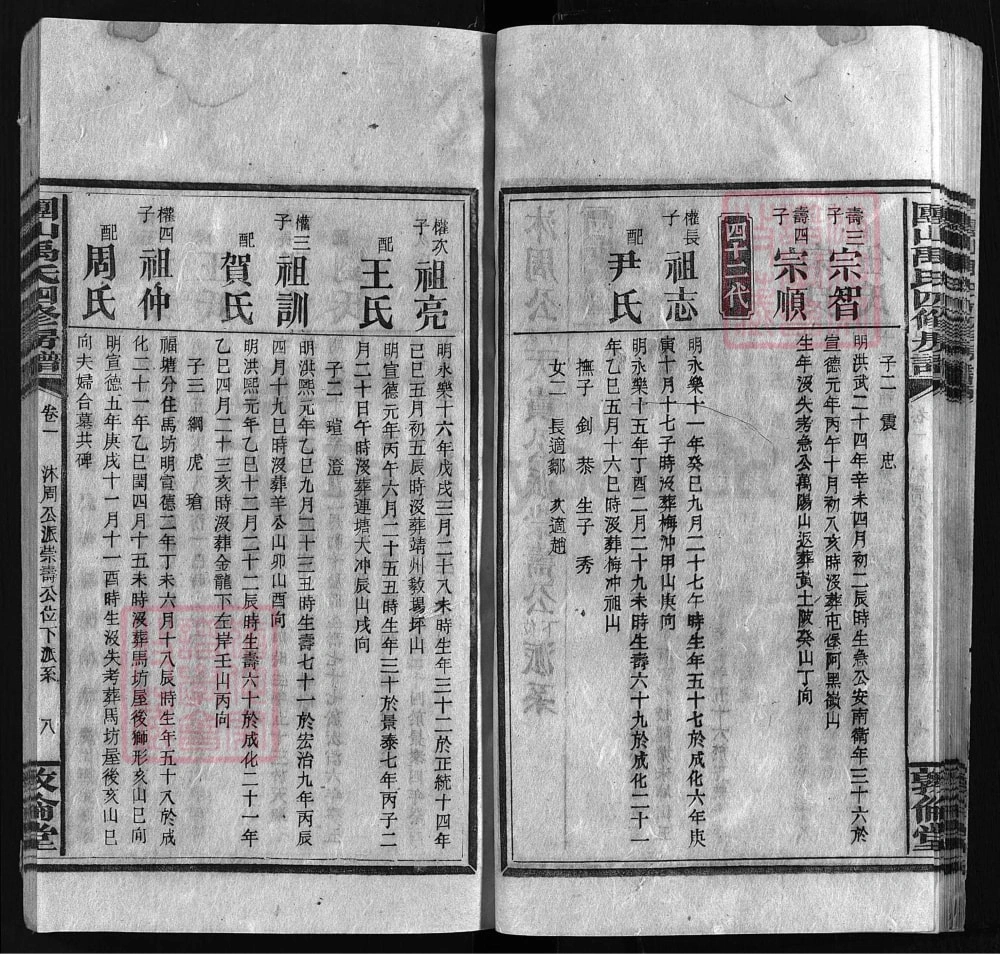 子二 震 忠
壽三子 宗智 明洪武二十四年辛未四月初二辰時生急公安南衛年三十六於
宣德元年丙午十月初八亥時沒葬屯堡阿黑嶺山
壽四子 宗順 生年沒失考急公萬陽山返葬黃土陂癸山丁向
四十二代
權長子 祖志 明永樂十一年癸巳九月二十七午時生年五十七於成化六年庚
寅十月十七子時沒葬梅沖甲山庚向
配 尹氏 明永樂十五年丁酉二月二十九未時生壽六十九於成化二十一
年乙巳五月十六巳時沒葬梅冲祖山
撫子 釗 恭 生子 秀
女二 長適鄒 次適趙
權次子 祖亮 明永樂十六年戊戌三月二十八未時生年三十二於正統十四年
己巳五月初五辰時沒葬靖州教場坪山
配 王氏 明宣德元年丙午六月二十五丑時生年三十於景泰七年丙子二
月二十日午時沒葬連塘大冲辰山戌向
子二 瑄 澄
權三子 祖訓 明洪熙元年乙巳九月二十三丑時生壽七十一於宏治九年丙辰
四月十九巳時沒葬羊公山卯山酉向
配 賀氏 明洪熙元年乙巳十二月二十二辰時生壽六十於成化二十一年
乙巳四月二十三亥時沒葬金龍下左岸壬山丙向
子三 綱 虎 瑲
權四子 祖仲 福塘分住馬坊明宣德二年丁未六月十八辰時生年五十八於成
化二十一年乙巳閏四月十五未時沒葬馬坊屋後獅形亥山巳向
配 周氏 明宣德五年庚戌十一月十一酉時生沒失考葬馬坊屋後亥山巳
向夫婦合墓共碑
卷一 沐周公派崇壽公位下派系 八
敦倫堂